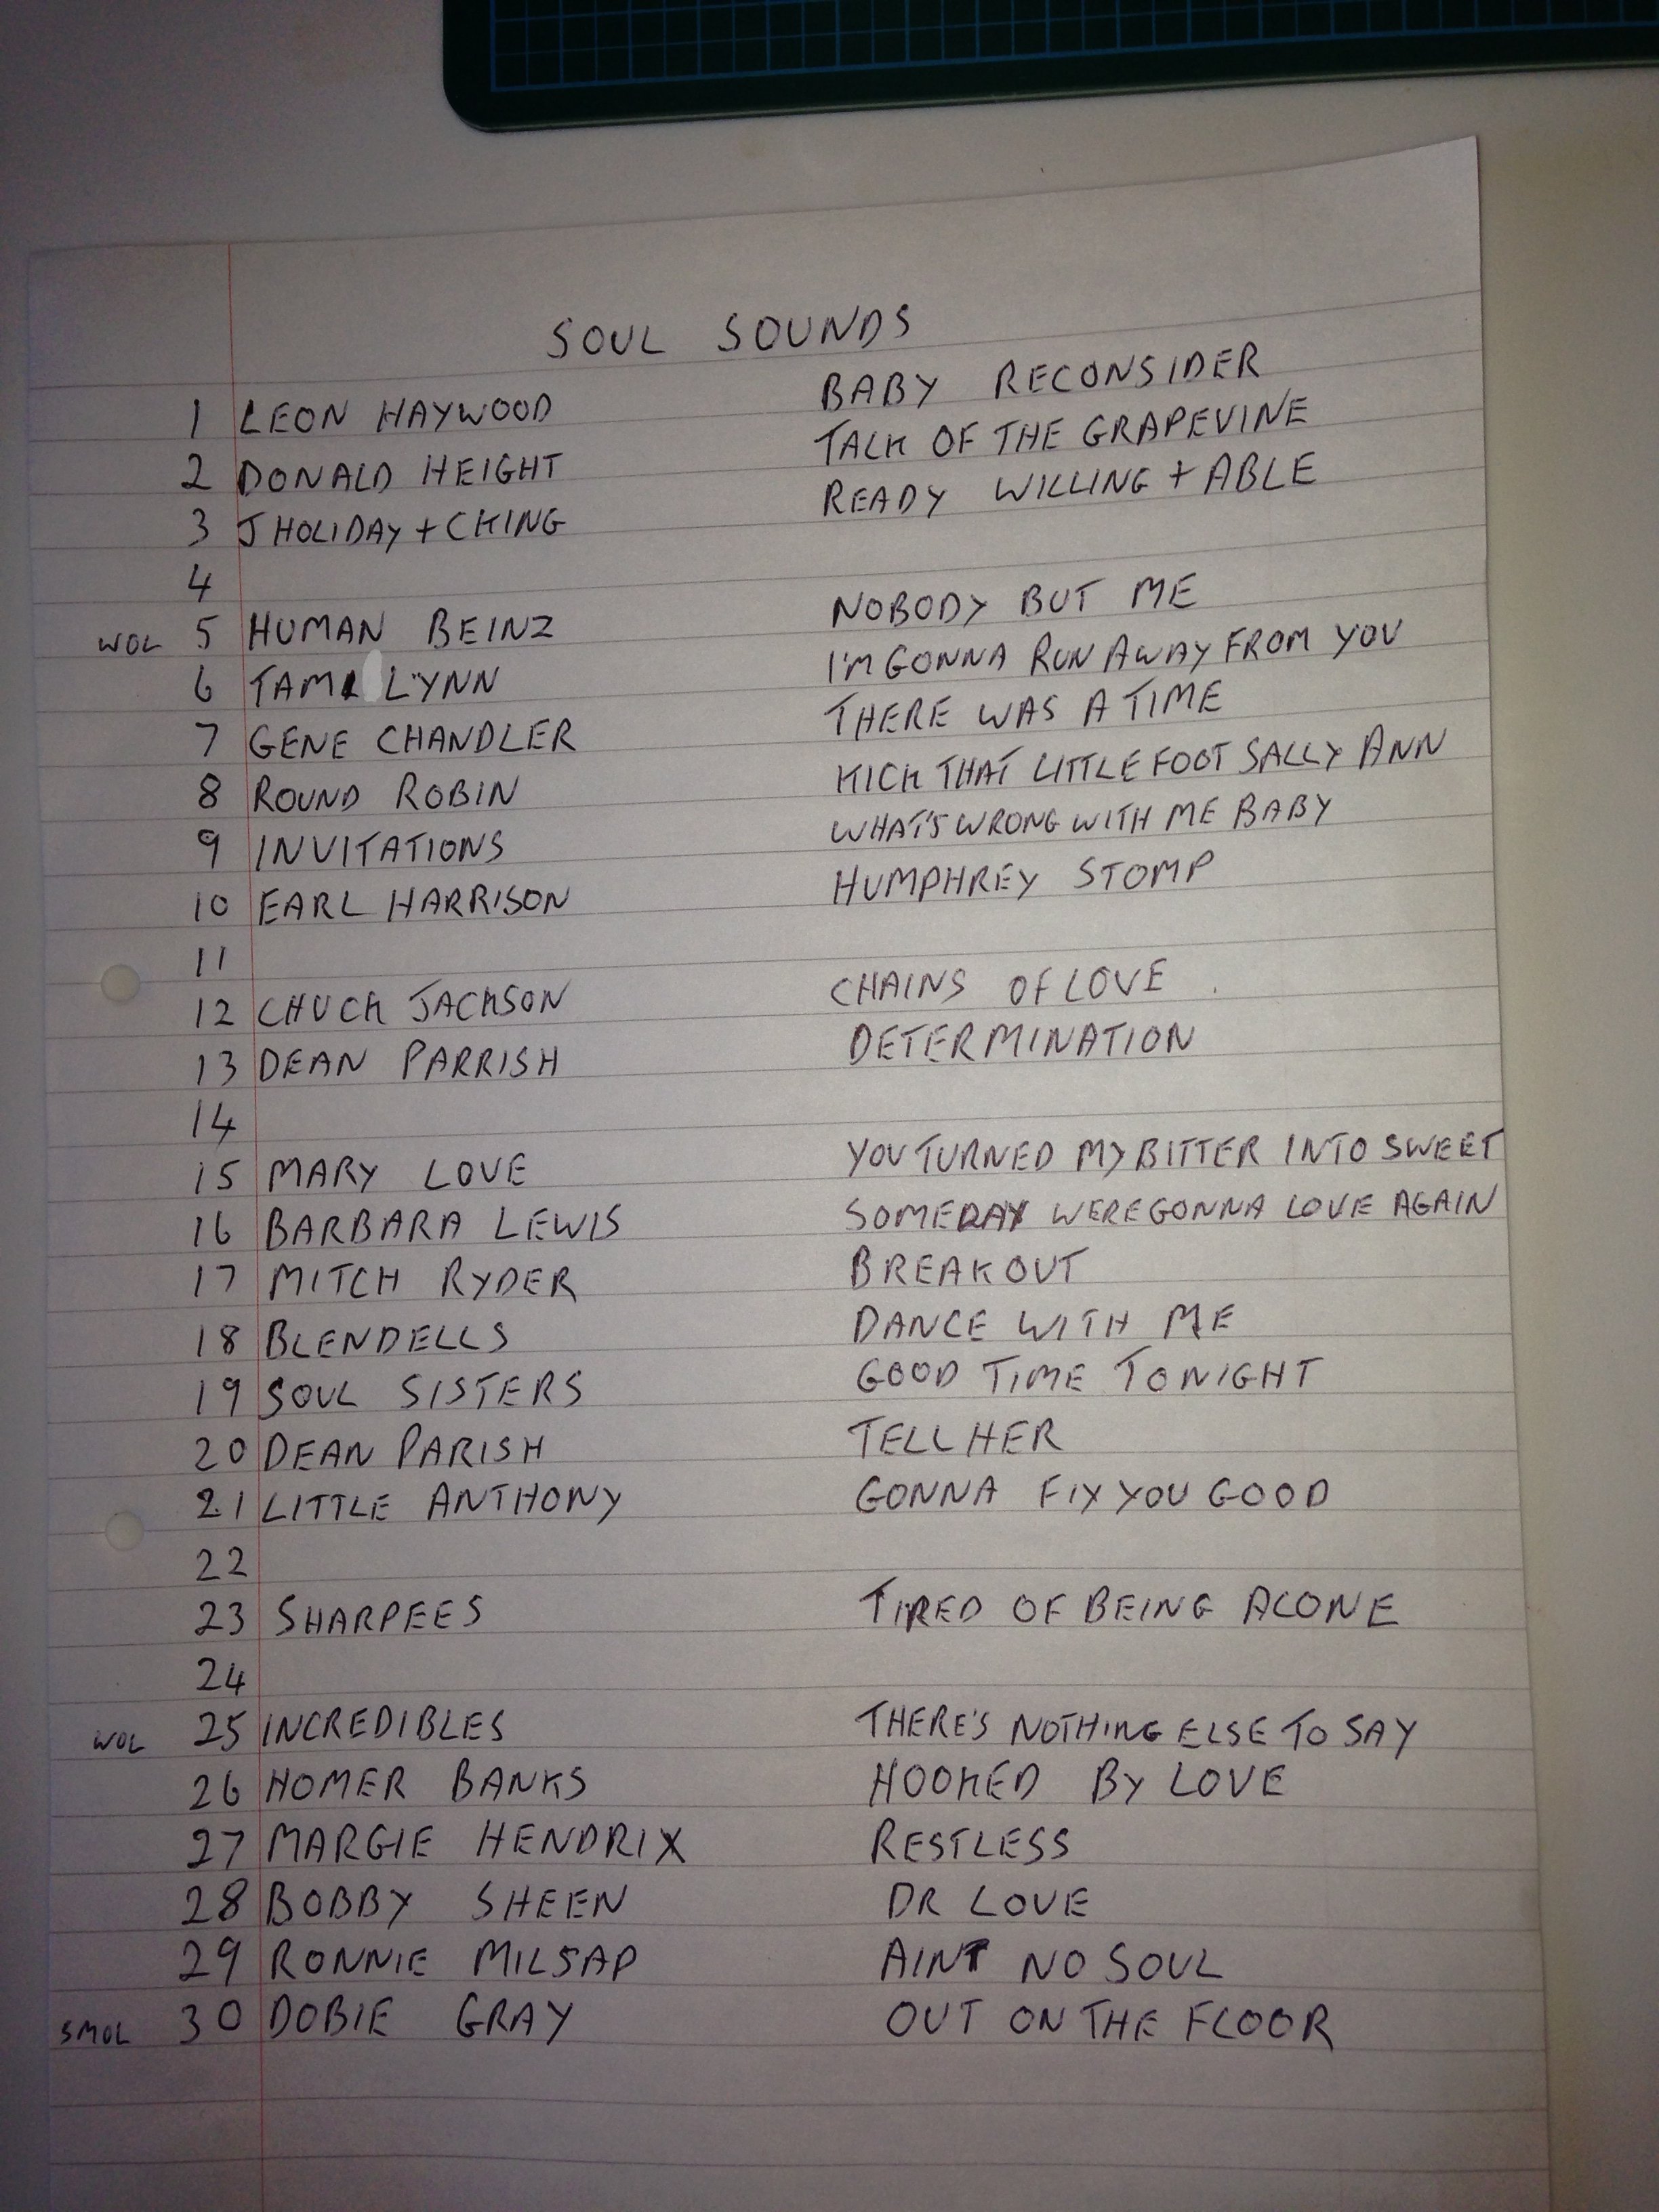 SOUL SOUNDS
1 LEON HAYWOOD BABY RECONSIDER
2 DONALD HEIGHT TALK OF THE GRAPEVINE
3 J HOLIDAY + C KING READY WILLING + ABLE
4
WOL 5 HUMAN BEINZ NOBODY BUT ME
6 TAMI LYNN I'M GONNA RUN AWAY FROM YOU
7 GENE CHANDLER THERE WAS A TIME
8 ROUND ROBIN KICK THAT LITTLE FOOT SALLY ANN
9 INVITATIONS WHAT'S WRONG WITH ME BABY
10 EARL HARRISON HUMPHREY STOMP
11
12 CHUCK JACKSON CHAINS OF LOVE
13 DEAN PARRISH DETERMINATION
14
15 MARY LOVE YOU TURNED MY BITTER INTO SWEET
16 BARBARA LEWIS SOMEDAY WERE GONNA LOVE AGAIN
17 MITCH RYDER BREAKOUT
18 BLENDELLS DANCE WITH ME
19 SOUL SISTERS GOOD TIME TONIGHT
20 DEAN PARISH TELL HER
21 LITTLE ANTHONY GONNA FIX YOU GOOD
22
23 SHARPEES TIRED OF BEING ALONE
24
WOL 25 INCREDIBLES THERE'S NOTHING ELSE TO SAY
26 HOMER BANKS HOOKED BY LOVE
27 MARGIE HENDRIX RESTLESS
28 BOBBY SHEEN DR LOVE
29 RONNIE MILSAP AINT NO SOUL
SMOL 30 DOBIE GRAY OUT ON THE FLOOR